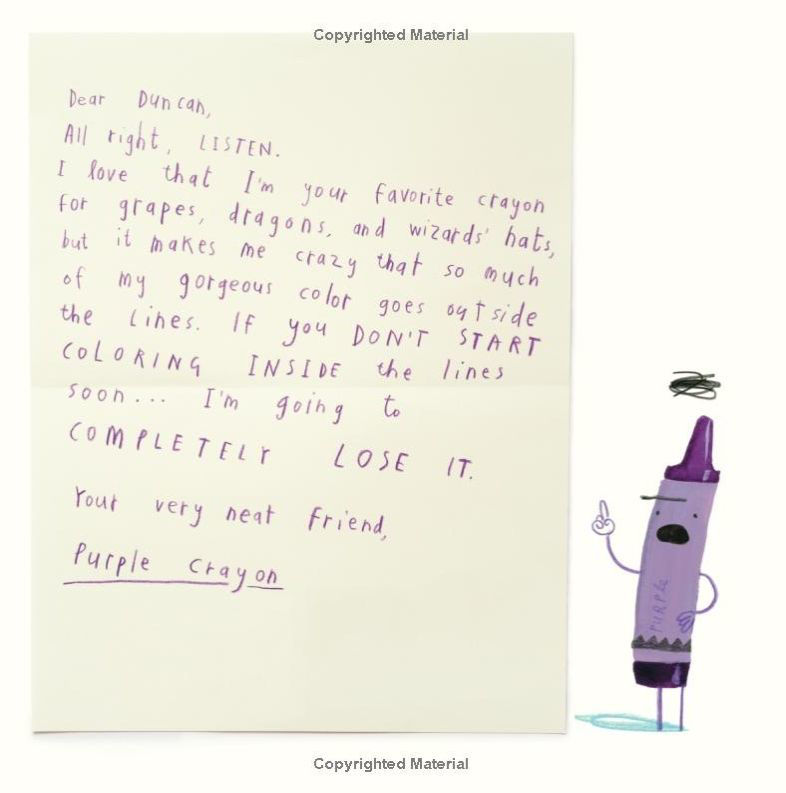 Copyrighted Material
Dear Duncan,
All right, LISTEN.
I love that I'm your favorite crayon
for grapes, dragons, and wizards' hats,
but it makes me crazy that so much
of my gorgeous color goes outside
the lines. If you DON'T START
COLORING INSIDE the lines
soon... I'm going to
COMPLETELY LOSE IT.
Your very neat friend,
Purple Crayon
PURPLE
Copyrighted Material